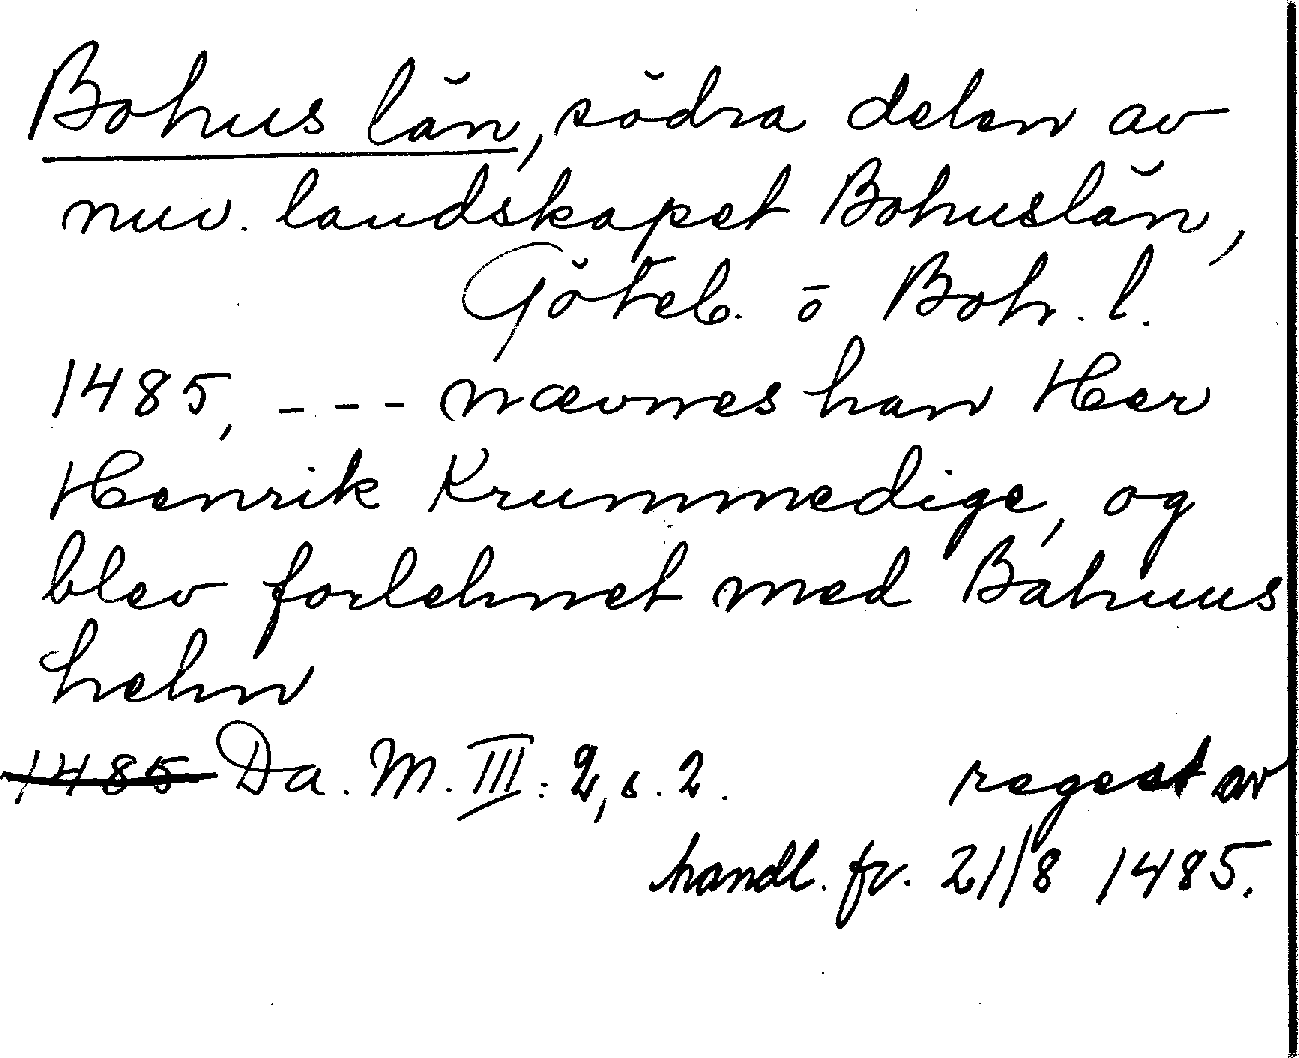 Bohus län, södra delen av
nuv. landskapet Bohuslän,
Göteb. o Boh. l.
1485, --- nævnes han Her
Henrik Krummedige, og
blev forlehnet med Bahuus
hehn
1485 Da. M. III: 2, s. 2. regest av
handl. fr. 21/8 1485.